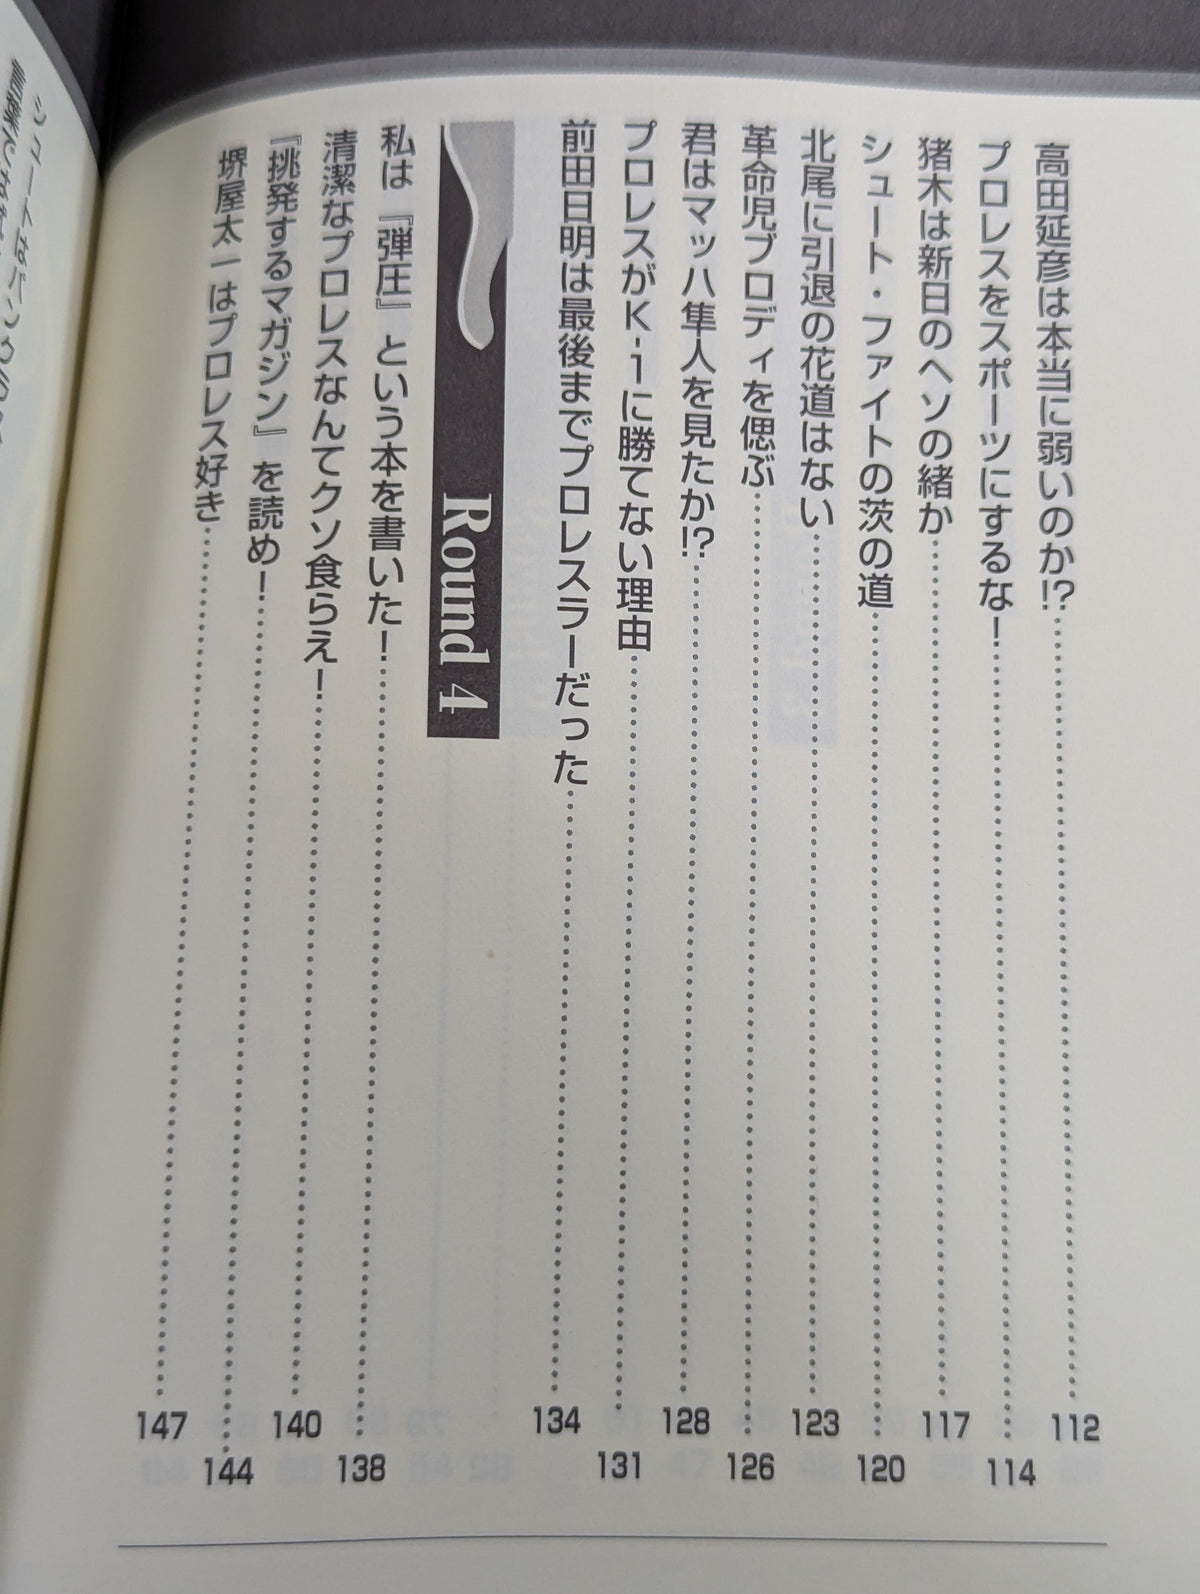 高田延彦は本当に弱いのか!?……112
プロレスをスポーツにするな！……114
猪木は新日のヘソの緒か……117
シュート・ファイトの茨の道……120
北尾に引退の花道はない……123
革命児ブロディを偲ぶ……126
君はマッハ隼人を見たか!?……128
プロレスがK-1に勝てない理由……131
前田日明は最後までプロレスラーだった……134
Round 4
私は『弾圧』という本を書いた！……138
清潔なプロレスなんてクソ食らえ！……140
『挑発するマガジン』を読め！……144
堺屋太一はプロレス好き……147